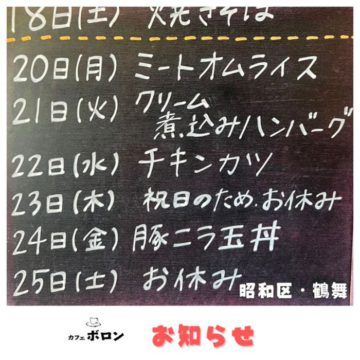 18日(土) 焼きそば
20日(月) ミートオムライス
21日(火) クリーム
煮込みハンバーグ
22日(水) チキンカツ
23日(木) 祝日のため、お休み
24日(金) 豚ニラ玉丼
25日(土) お休み
昭和区・鶴舞
カフェ ボロン
お知らせ